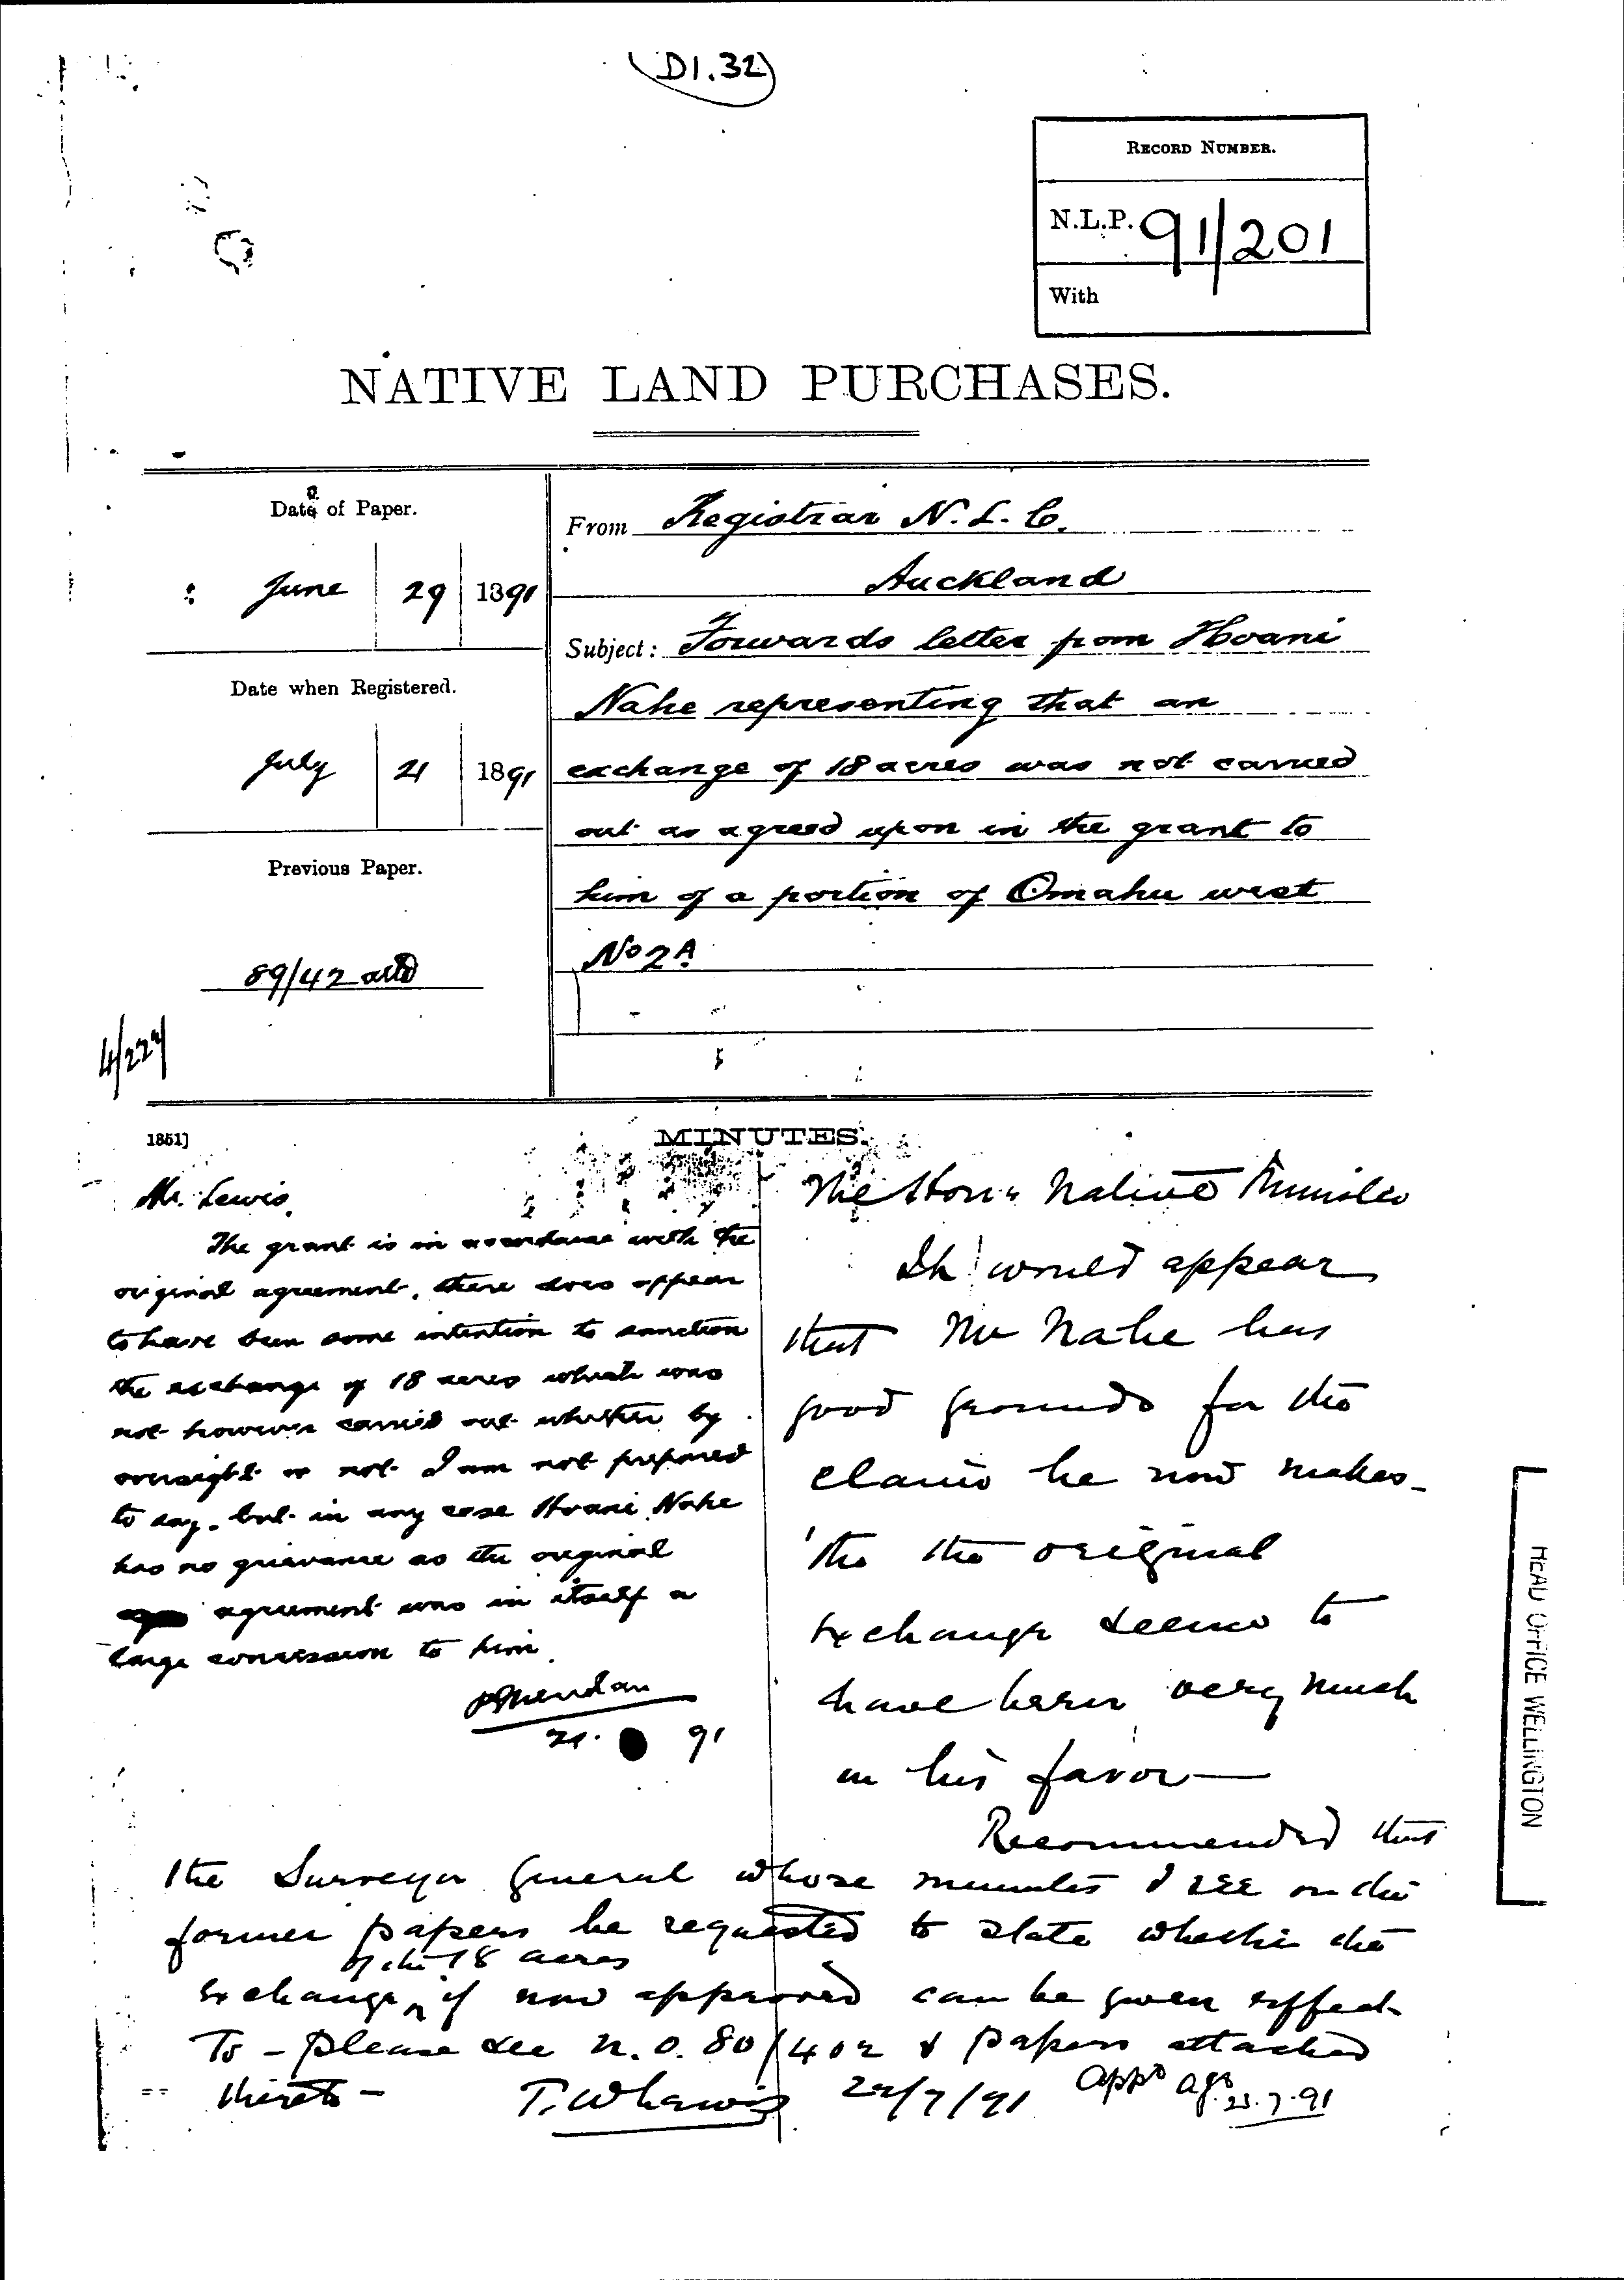 (D1.32)
RECORD NUMBER.
N.L.P. 91/201
With
NATIVE LAND PURCHASES.
Date of Paper.
June 29 1891
Date when Registered.
July 21 1891
Previous Paper.
89/42 attd
4/229
From Registrar N. L. C.
Auckland
Subject: Forwards letter from Hoani
Nahe representing that an
exchange of 18 acres was not carried
out as agreed upon in the grant to
him of a portion of Omahu west
No 2A
1851]
MINUTES.
Mr. Lewis.
The grant is in accordance with the
original agreement, there does appear
to have been some intention to sanction
the exchange of 18 acres which was
not however carried out whether by
oversight or not I am not prepared
to say. but in any case Hoani Nahe
has no grievance as the original
agreement was in itself a
large concession to him.
P Sheridan
21. 91
The Hon. Native Minister
It would appear
that Mr Nahe has
good grounds for the
claim he now makes -
tho the original
exchange seems to
have been very much
in his favor —
Recommended that
the Surveyor General whose minutes I see on the
former papers be requested to state whether the
of the 18 acres
exchange ^ if now approved can be given effect
To - Please see N.O. 80/402 & papers attached
thereto -
T. W Lewis 22/7/91
Appd AJC 23.7.91
HEAD OFFICE WELLINGTON